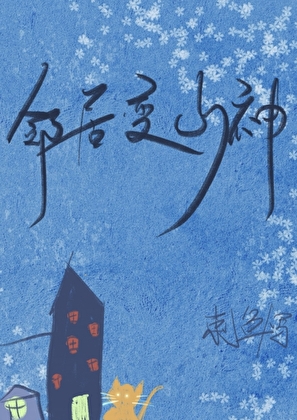 邻居变山神
刺鱼写